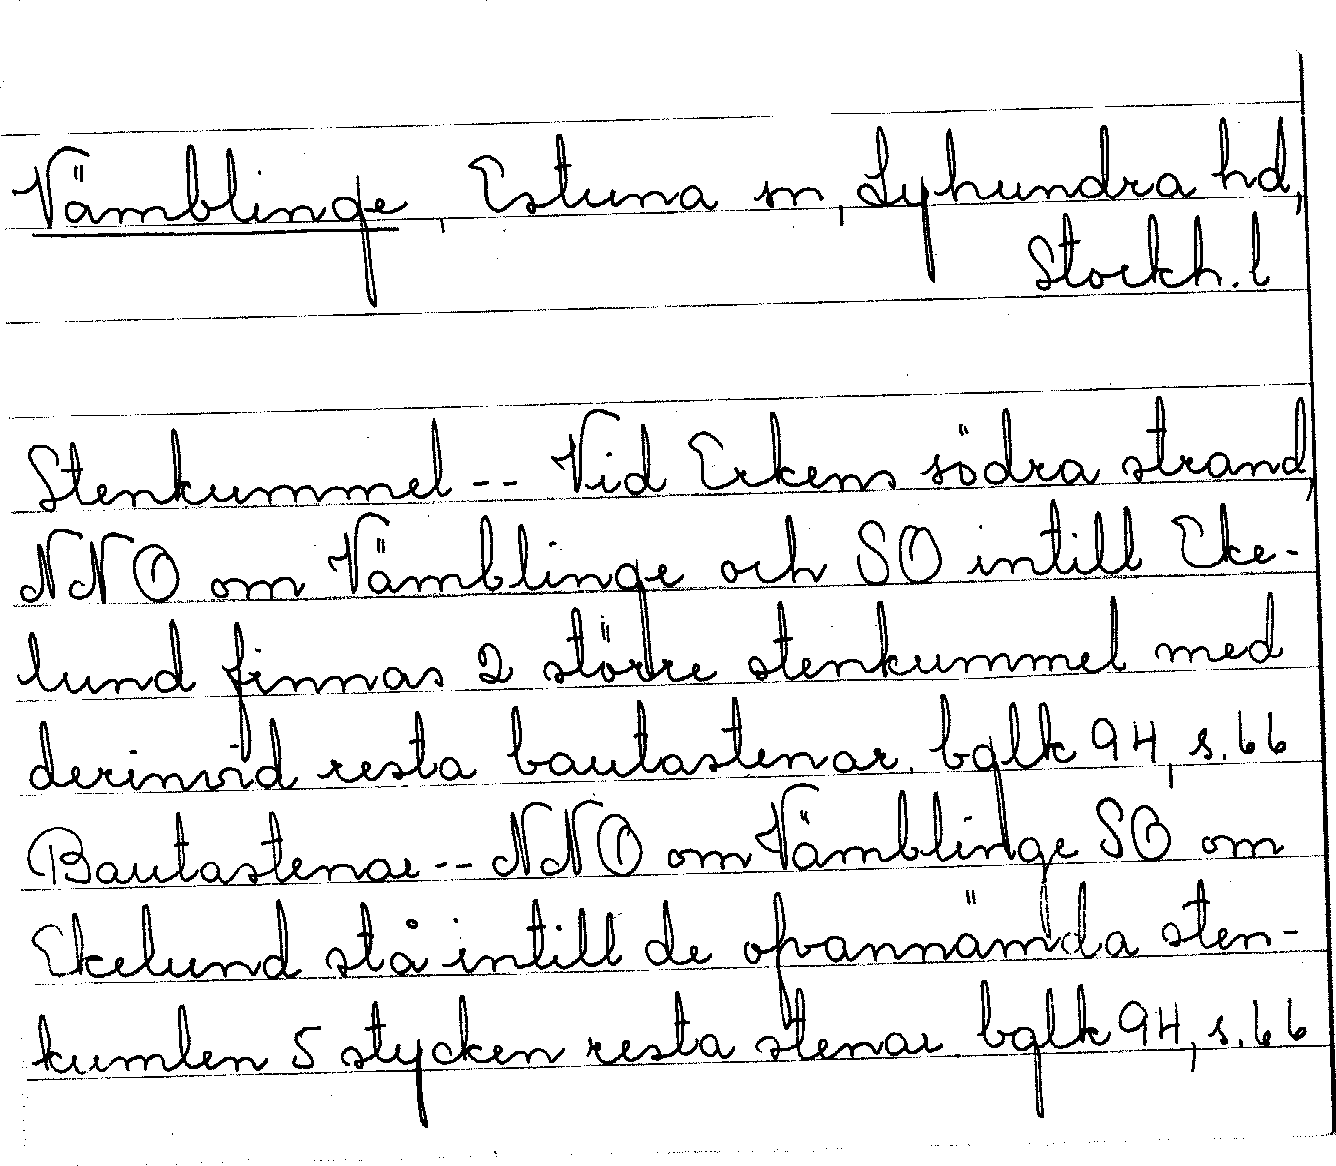 Vämblinge, Estuna sn, Lyhundra hd,
Stockh. l
Stenkummel -- Vid Erkens södra strand,
NNO om Vämblinge och SO intill Eke-
lund finnas 2 större stenkummel med
derinvid resta bautastenar. bglk 94, s. 66
Bautastenar -- NNO om Vämblinge SO om
Ekelund stå intill de ofvannämda sten-
kumlen 5 stycken resta stenar. bglk 94, s. 66